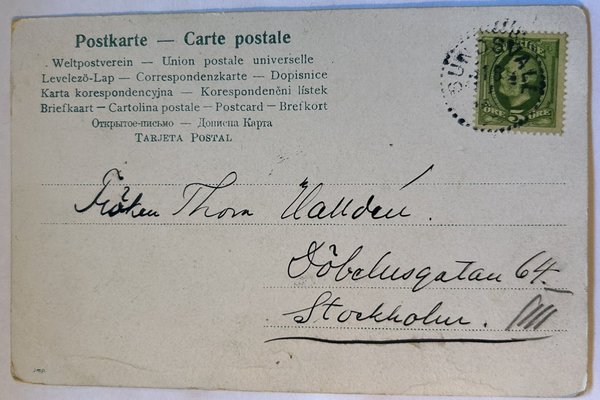 Postkarte — Carte postale
Weltpostverein — Union postale universelle
Levelező-Lap — Correspondenzkarte — Dopisnice
Karta korespondencyjna — Korespondenční lístek
Briefkaart — Cartolina postale — Postcard — Brefkort
Открытое-письмо — Дописна Карта
TARJETA POSTAL
SUNDSVALL
Fröken Thora Walldén.
Döbelnsgatan 64.
Stockholm.
Imp.